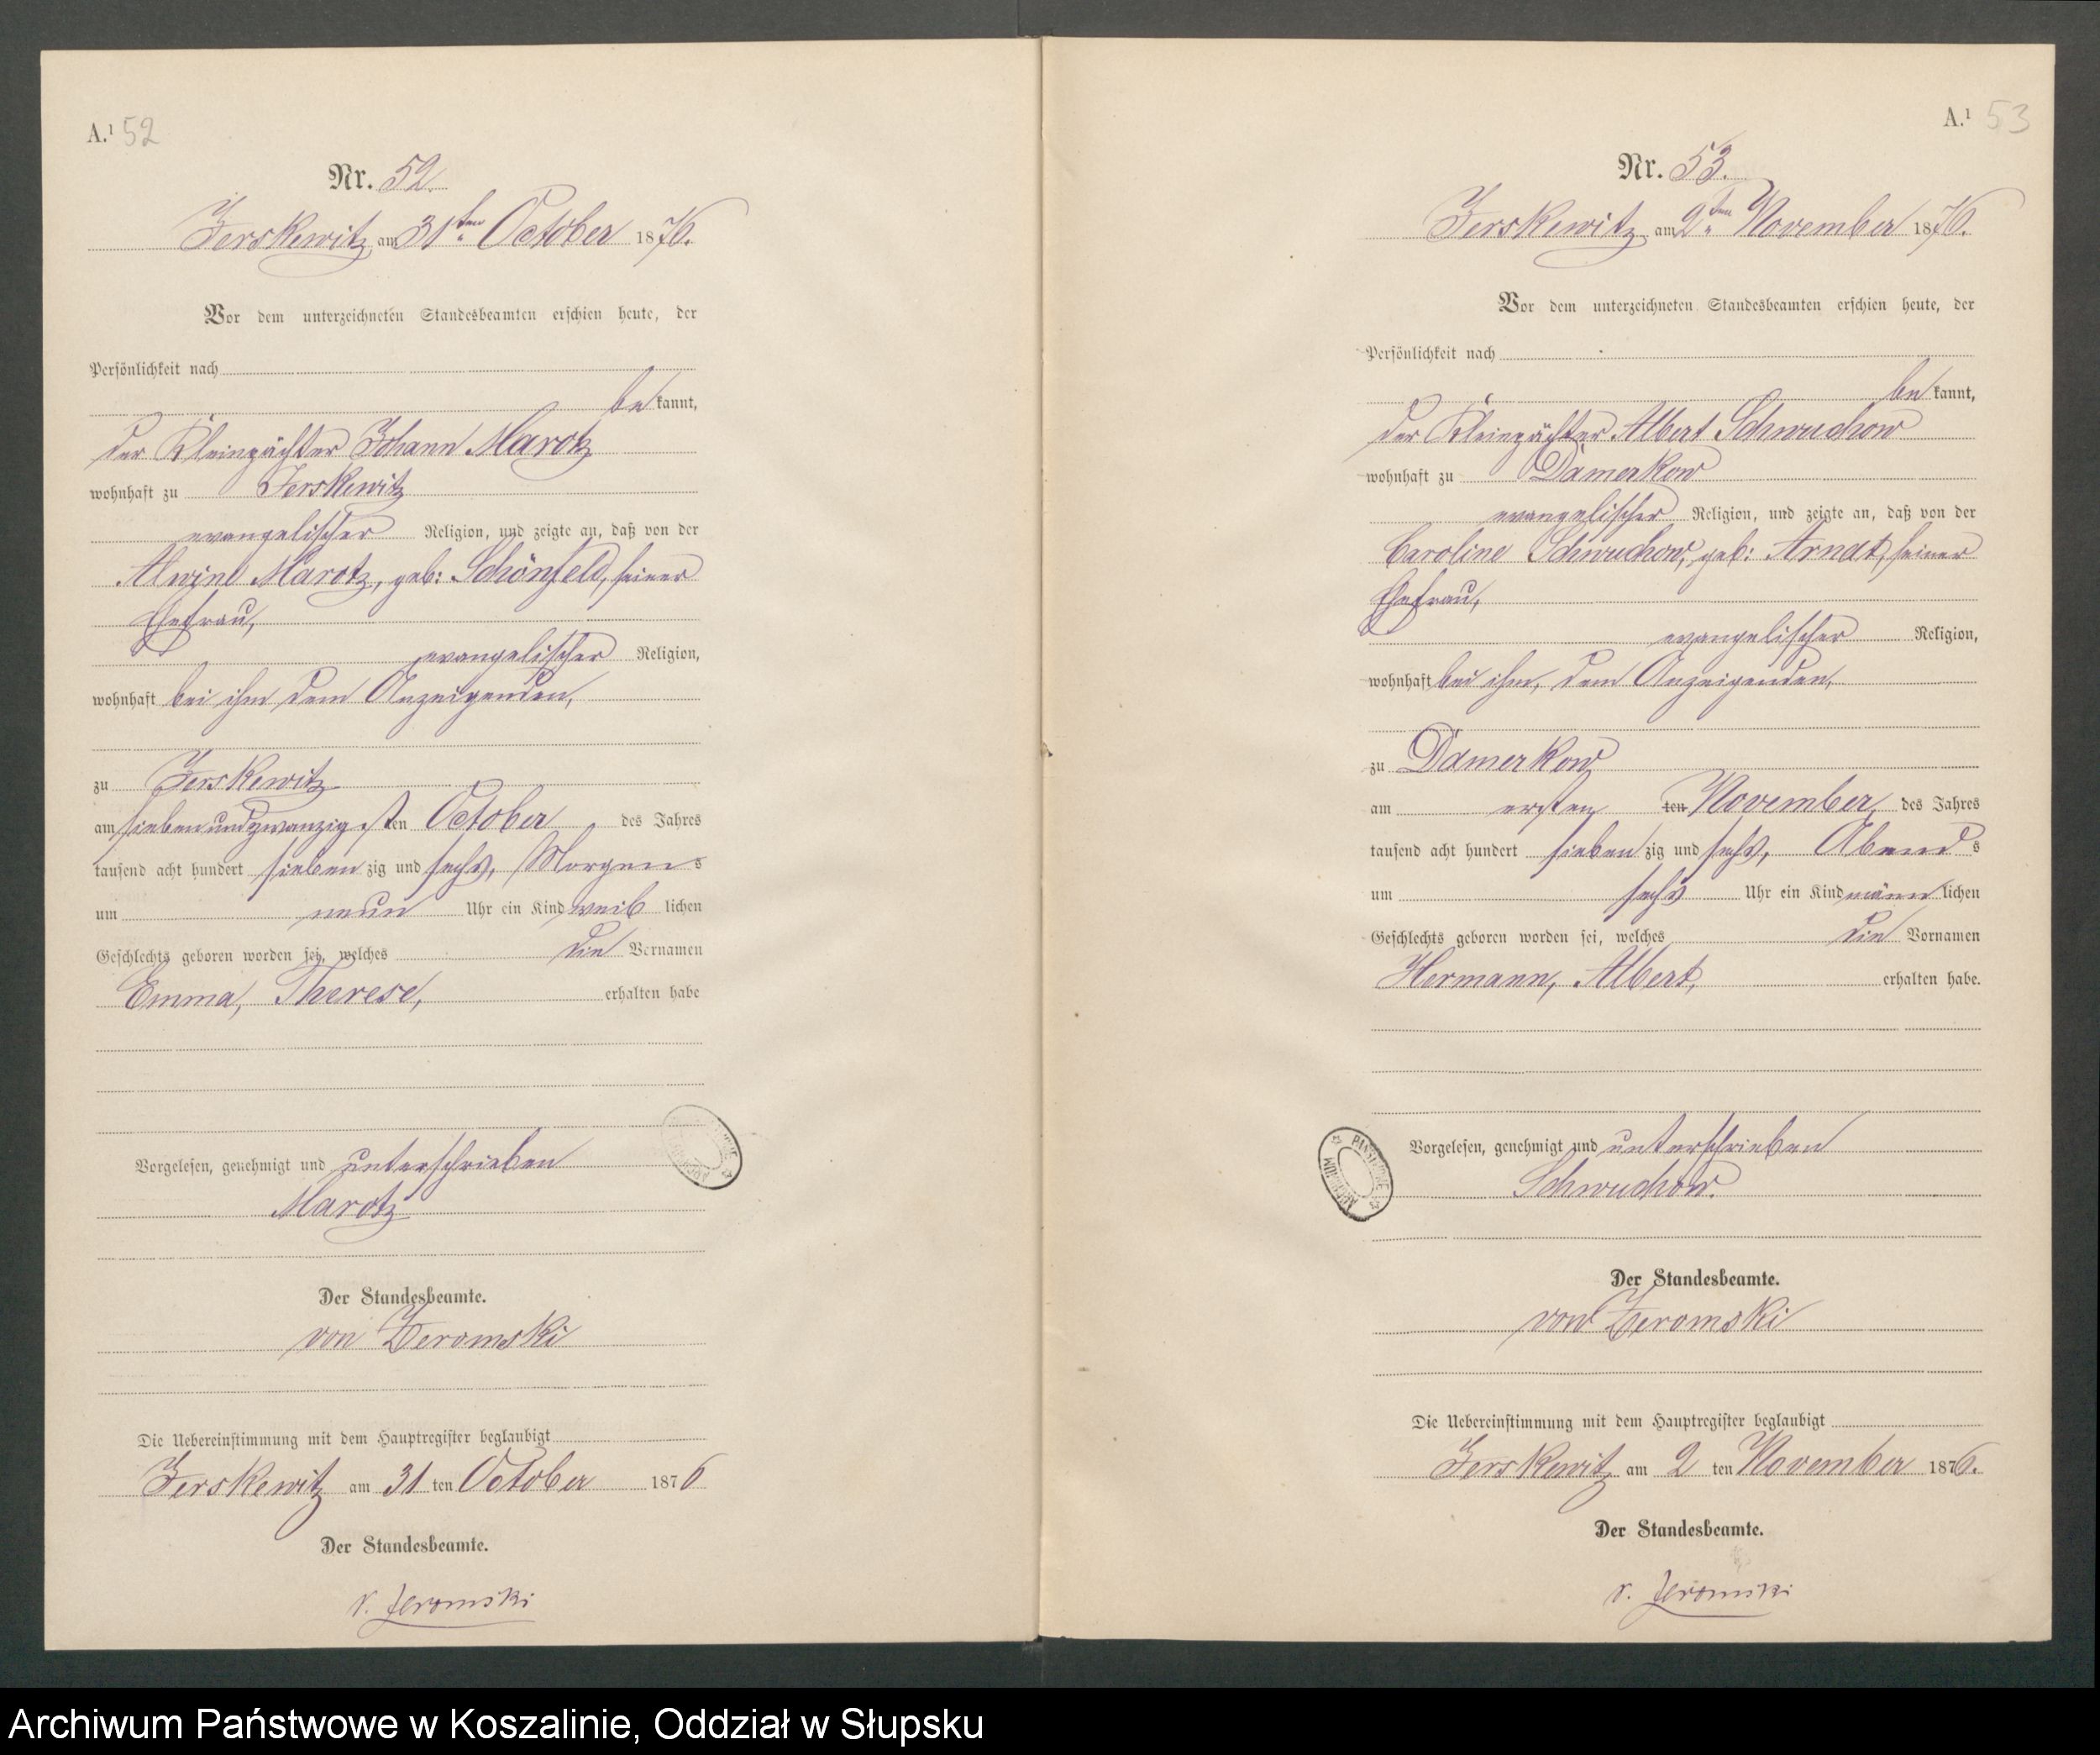 A.¹ 52
Nr. 52.
Jerskewitz am 31ten October 1876.
Vor dem unterzeichneten Standesbeamten erschien heute, der
Persönlichkeit nach
bekannt,
der Kleinpächter Johann Marotz
wohnhaft zu Jerskewitz
evangelischer Religion, und zeigte an, daß von der
Alwine Marotz, geb: Schönfeld, seiner
Ehefrau,
evangelischer Religion,
wohnhaft bei ihm dem Anzeigenden,
zu Jerskewitz
am siebenundzwanzigsten October des Jahres
tausend acht hundert siebenzig und sechs, Morgens
um neun Uhr ein Kind weiblichen
Geschlechts geboren worden sei, welches die Vornamen
Emma, Therese, erhalten habe
Vorgelesen, genehmigt und unterschrieben
Marotz
Der Standesbeamte.
von Zeromski
Die Uebereinstimmung mit dem Hauptregister beglaubigt
Jerskewitz am 31 ten October 1876
Der Standesbeamte.
v. Zeromski
A.¹ 53
Nr. 53.
Jerskewitz am 2ten November 1876.
Vor dem unterzeichneten Standesbeamten erschien heute, der
Persönlichkeit nach
bekannt,
der Kleinpächter Albert Schwuchow
wohnhaft zu Damerkow
evangelischer Religion, und zeigte an, daß von der
Caroline Schwuchow, geb: Arndt, seiner
Ehefrau,
evangelischer Religion,
wohnhaft bei ihm, dem Anzeigenden,
zu Damerkow
am ersten ten November des Jahres
tausend acht hundert siebenzig und sechs, Abends
um sechs Uhr ein Kind männlichen
Geschlechts geboren worden sei, welches die Vornamen
Hermann, Albert, erhalten habe.
Vorgelesen, genehmigt und unterschrieben
Schwuchow.
ARCHIWUM PAŃSTWOWE
Der Standesbeamte.
von Zeromski
Die Uebereinstimmung mit dem Hauptregister beglaubigt
Jerskewitz am 2 ten November 1876.
Der Standesbeamte.
v. Zeromski
Archiwum Państwowe w Koszalinie, Oddział w Słupsku